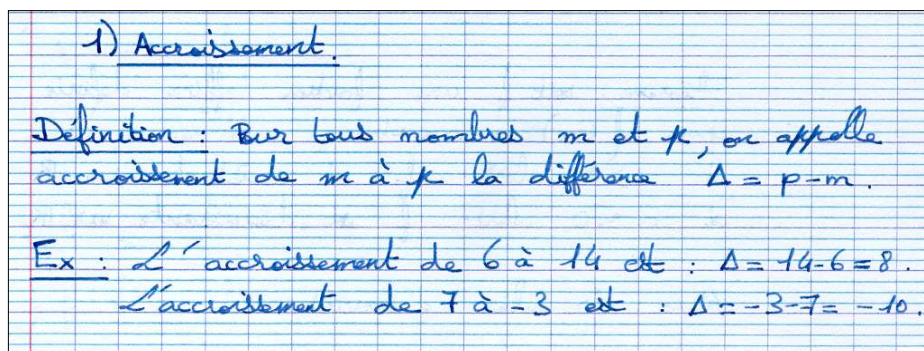 1) Accroissement.
Définition : Pour tous nombres m et p, on appelle
accroissement de m à p la différence Δ = p-m.
Ex : L'accroissement de 6 à 14 est : Δ = 14-6=8.
L'accroissement de 7 à -3 est : Δ=-3-7= -10.